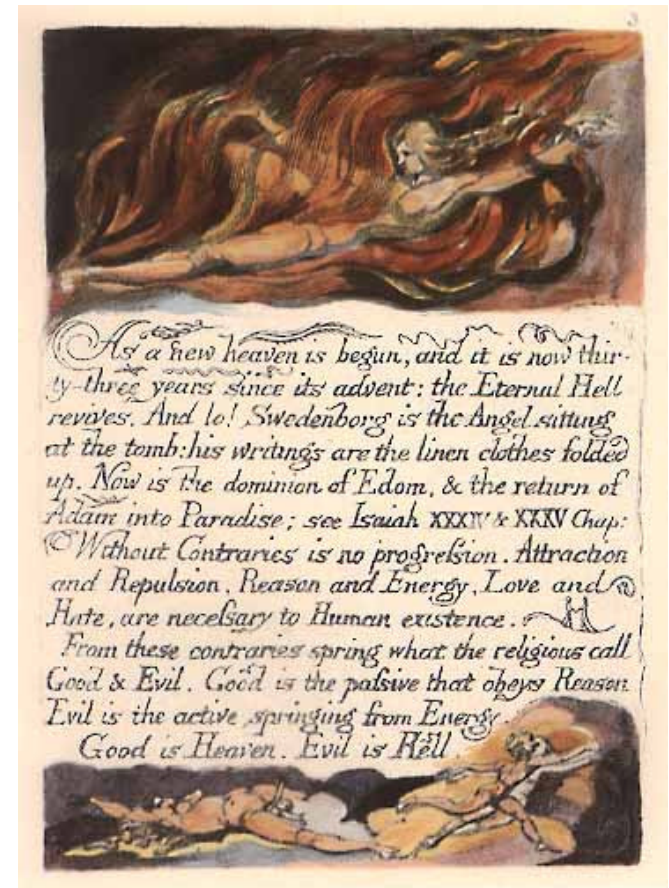 3
As a new heaven is begun, and it is now thir-
ty-three years since its advent: the Eternal Hell
revives. And lo! Swedenborg is the Angel sitting
at the tomb: his writings are the linen clothes folded
up. Now is the dominion of Edom, & the return of
Adam into Paradise; see Isaiah XXXIV & XXXV Chap:
Without Contraries is no progreſsion. Attraction
and Repulsion, Reason and Energy, Love and
Hate, are neceſsary to Human existence.
From these contraries spring what the religious call
Good & Evil. Good is the paſsive that obeys Reason
Evil is the active springing from Energy.
Good is Heaven. Evil is Hell